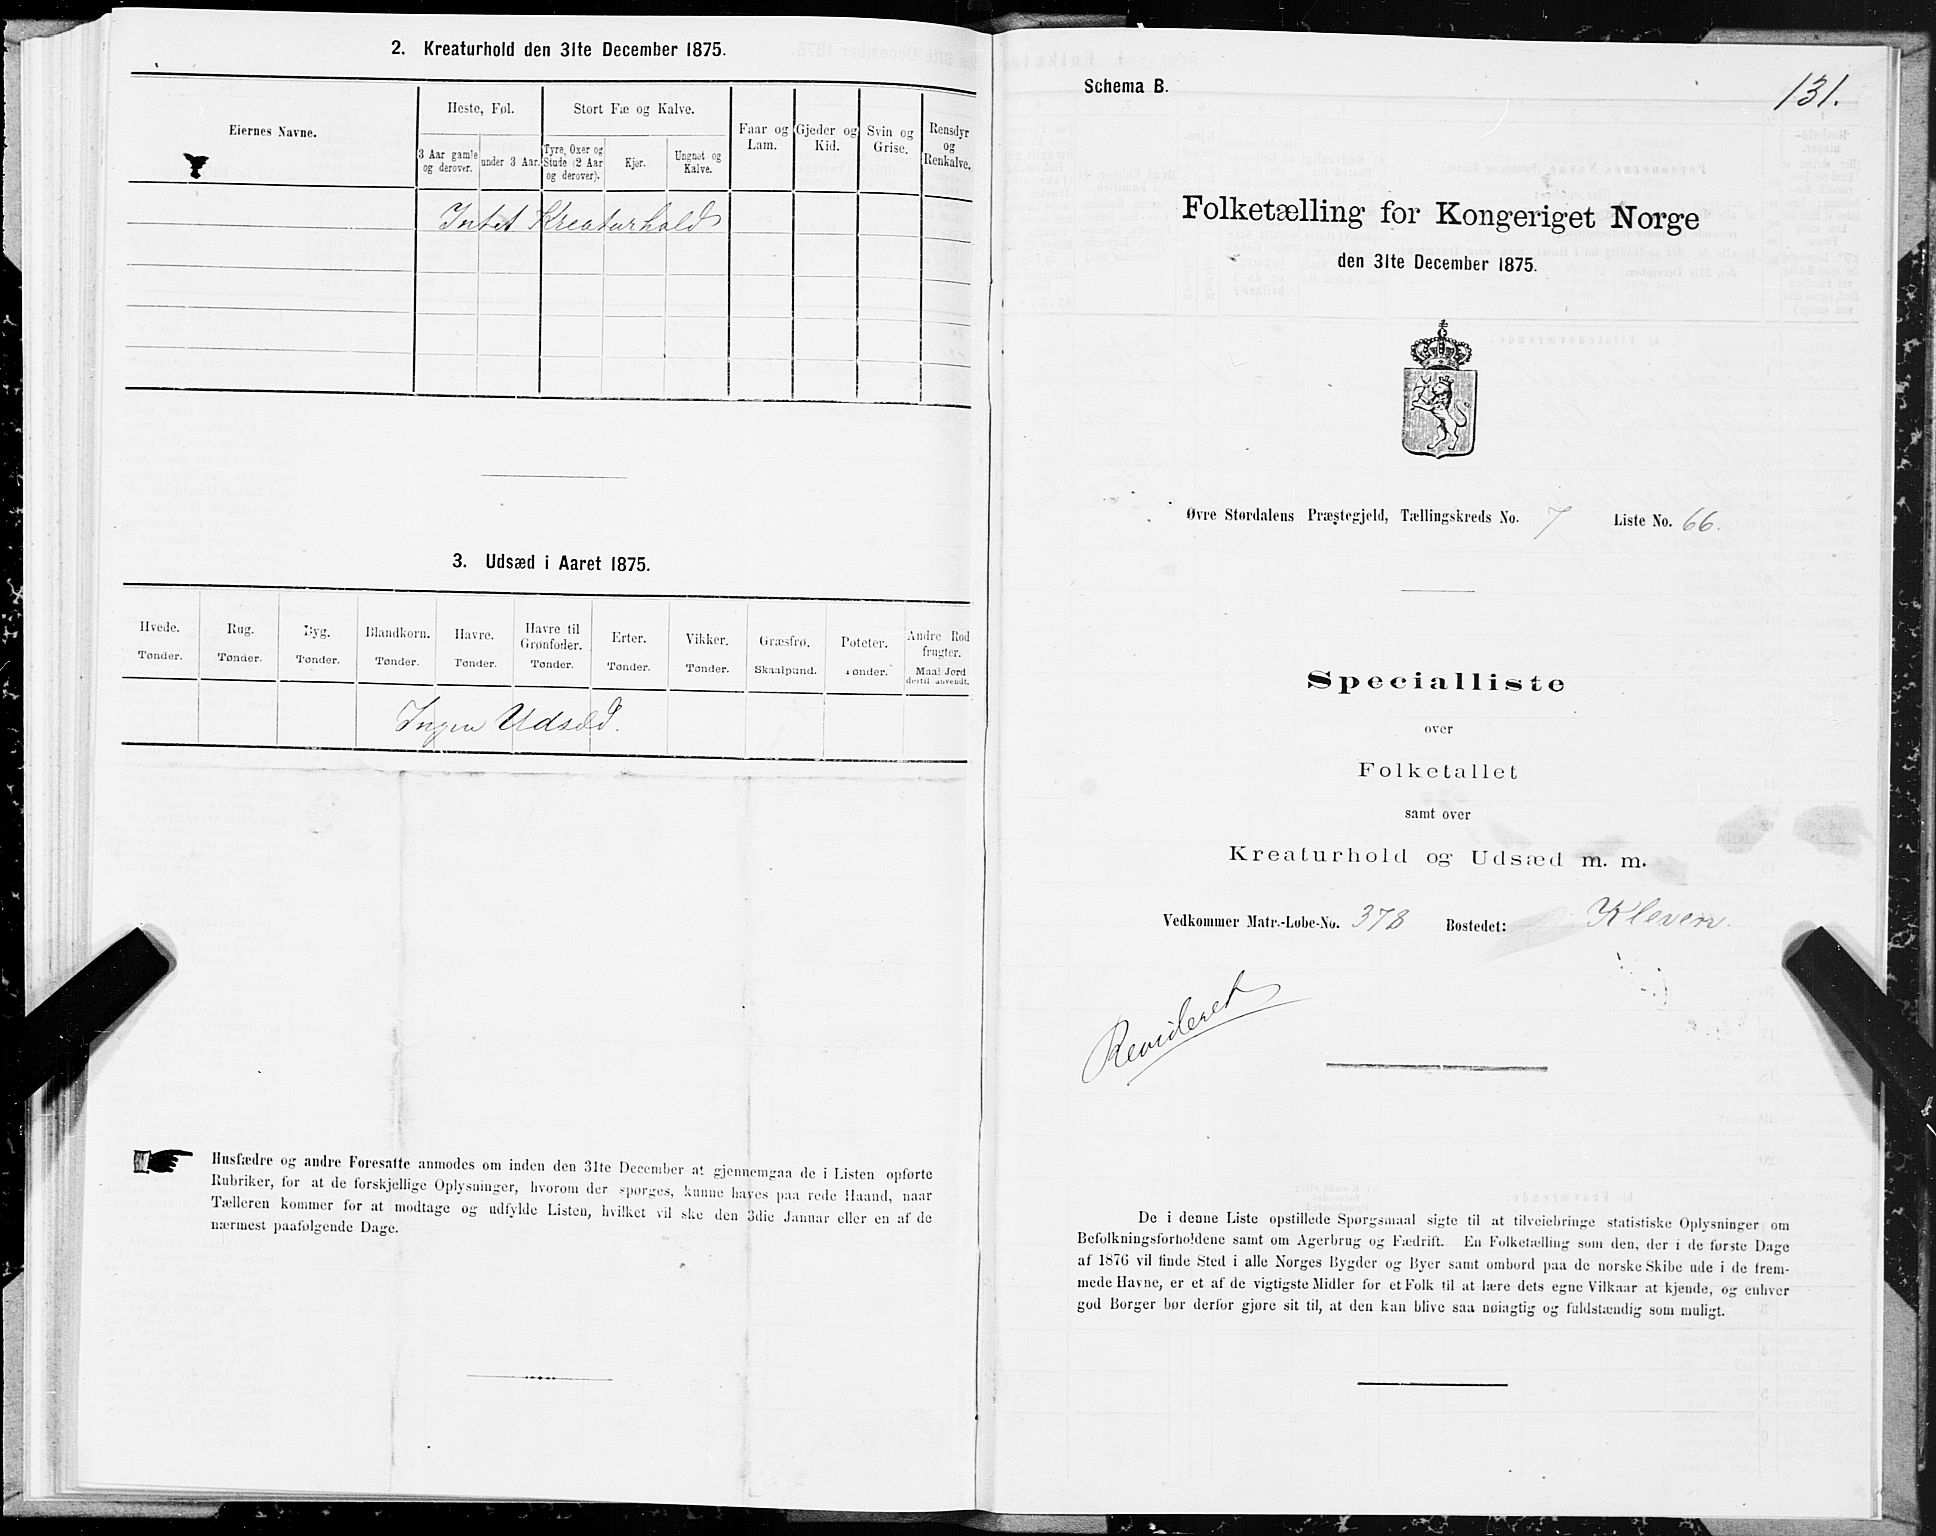 2. Kreaturhold den 31te December 1875.
Eiernes Navne.
Heste, Føl.
Stort Fæ og Kalve.
Faar og Lam.
Gjeder og Kid.
Svin og Grise.
Rensdyr og Renkalve.
3 Aar gamle og derover.
under 3 Aar.
Tyre, Oxer og Stude (2 Aar og derover).
Kjør.
Ungnøt og Kalve.
Intet Kreaturhold
3. Udsæd i Aaret 1875.
Hvede. Tønder.
Rug. Tønder.
Byg. Tønder.
Blandkorn. Tønder.
Havre. Tønder.
Havre til Grønfoder. Tønder.
Erter. Tønder.
Vikker. Tønder.
Græsfrø. Skaalpund.
Poteter. Tønder.
Andre Rodfrugter. Maal Jord dertil anvendt.
Ingen Udsæd.
Husfædre og andre Foresatte anmodes om inden den 31te December at gjennemgaa de i Listen opførte
Rubriker, for at de forskjellige Oplysninger, hvorom der spørges, kunne haves paa rede Haand, naar
Tælleren kommer for at modtage og udfylde Listen, hvilket vil ske den 3die Januar eller en af de
nærmest paafølgende Dage.
131.
Schema B.
Folketælling for Kongeriget Norge
den 31te December 1875.
Øvre Størdalens Præstegjeld, Tællingskreds No. 7 Liste No. 66.
Specialliste
over
Folketallet
samt over
Kreaturhold og Udsæd m. m.
Vedkommer Matr.-Løbe-No. 378 Bostedet: Kleven.
Revideret
De i denne Liste opstillede Spørgsmaal sigte til at tilveiebringe statistiske Oplysninger om
Befolkningsforholdene samt om Agerbrug og Fædrift. En Folketælling som den, der i de første Dage
af 1876 vil finde Sted i alle Norges Bygder og Byer samt ombord paa de norske Skibe ude i de frem-
mede Havne, er et af de vigtigste Midler for et Folk til at lære dets egne Vilkaar at kjende, og enhver
god Borger bør derfor gjøre sit til, at den kan blive saa nøiagtig og fuldstændig som muligt.